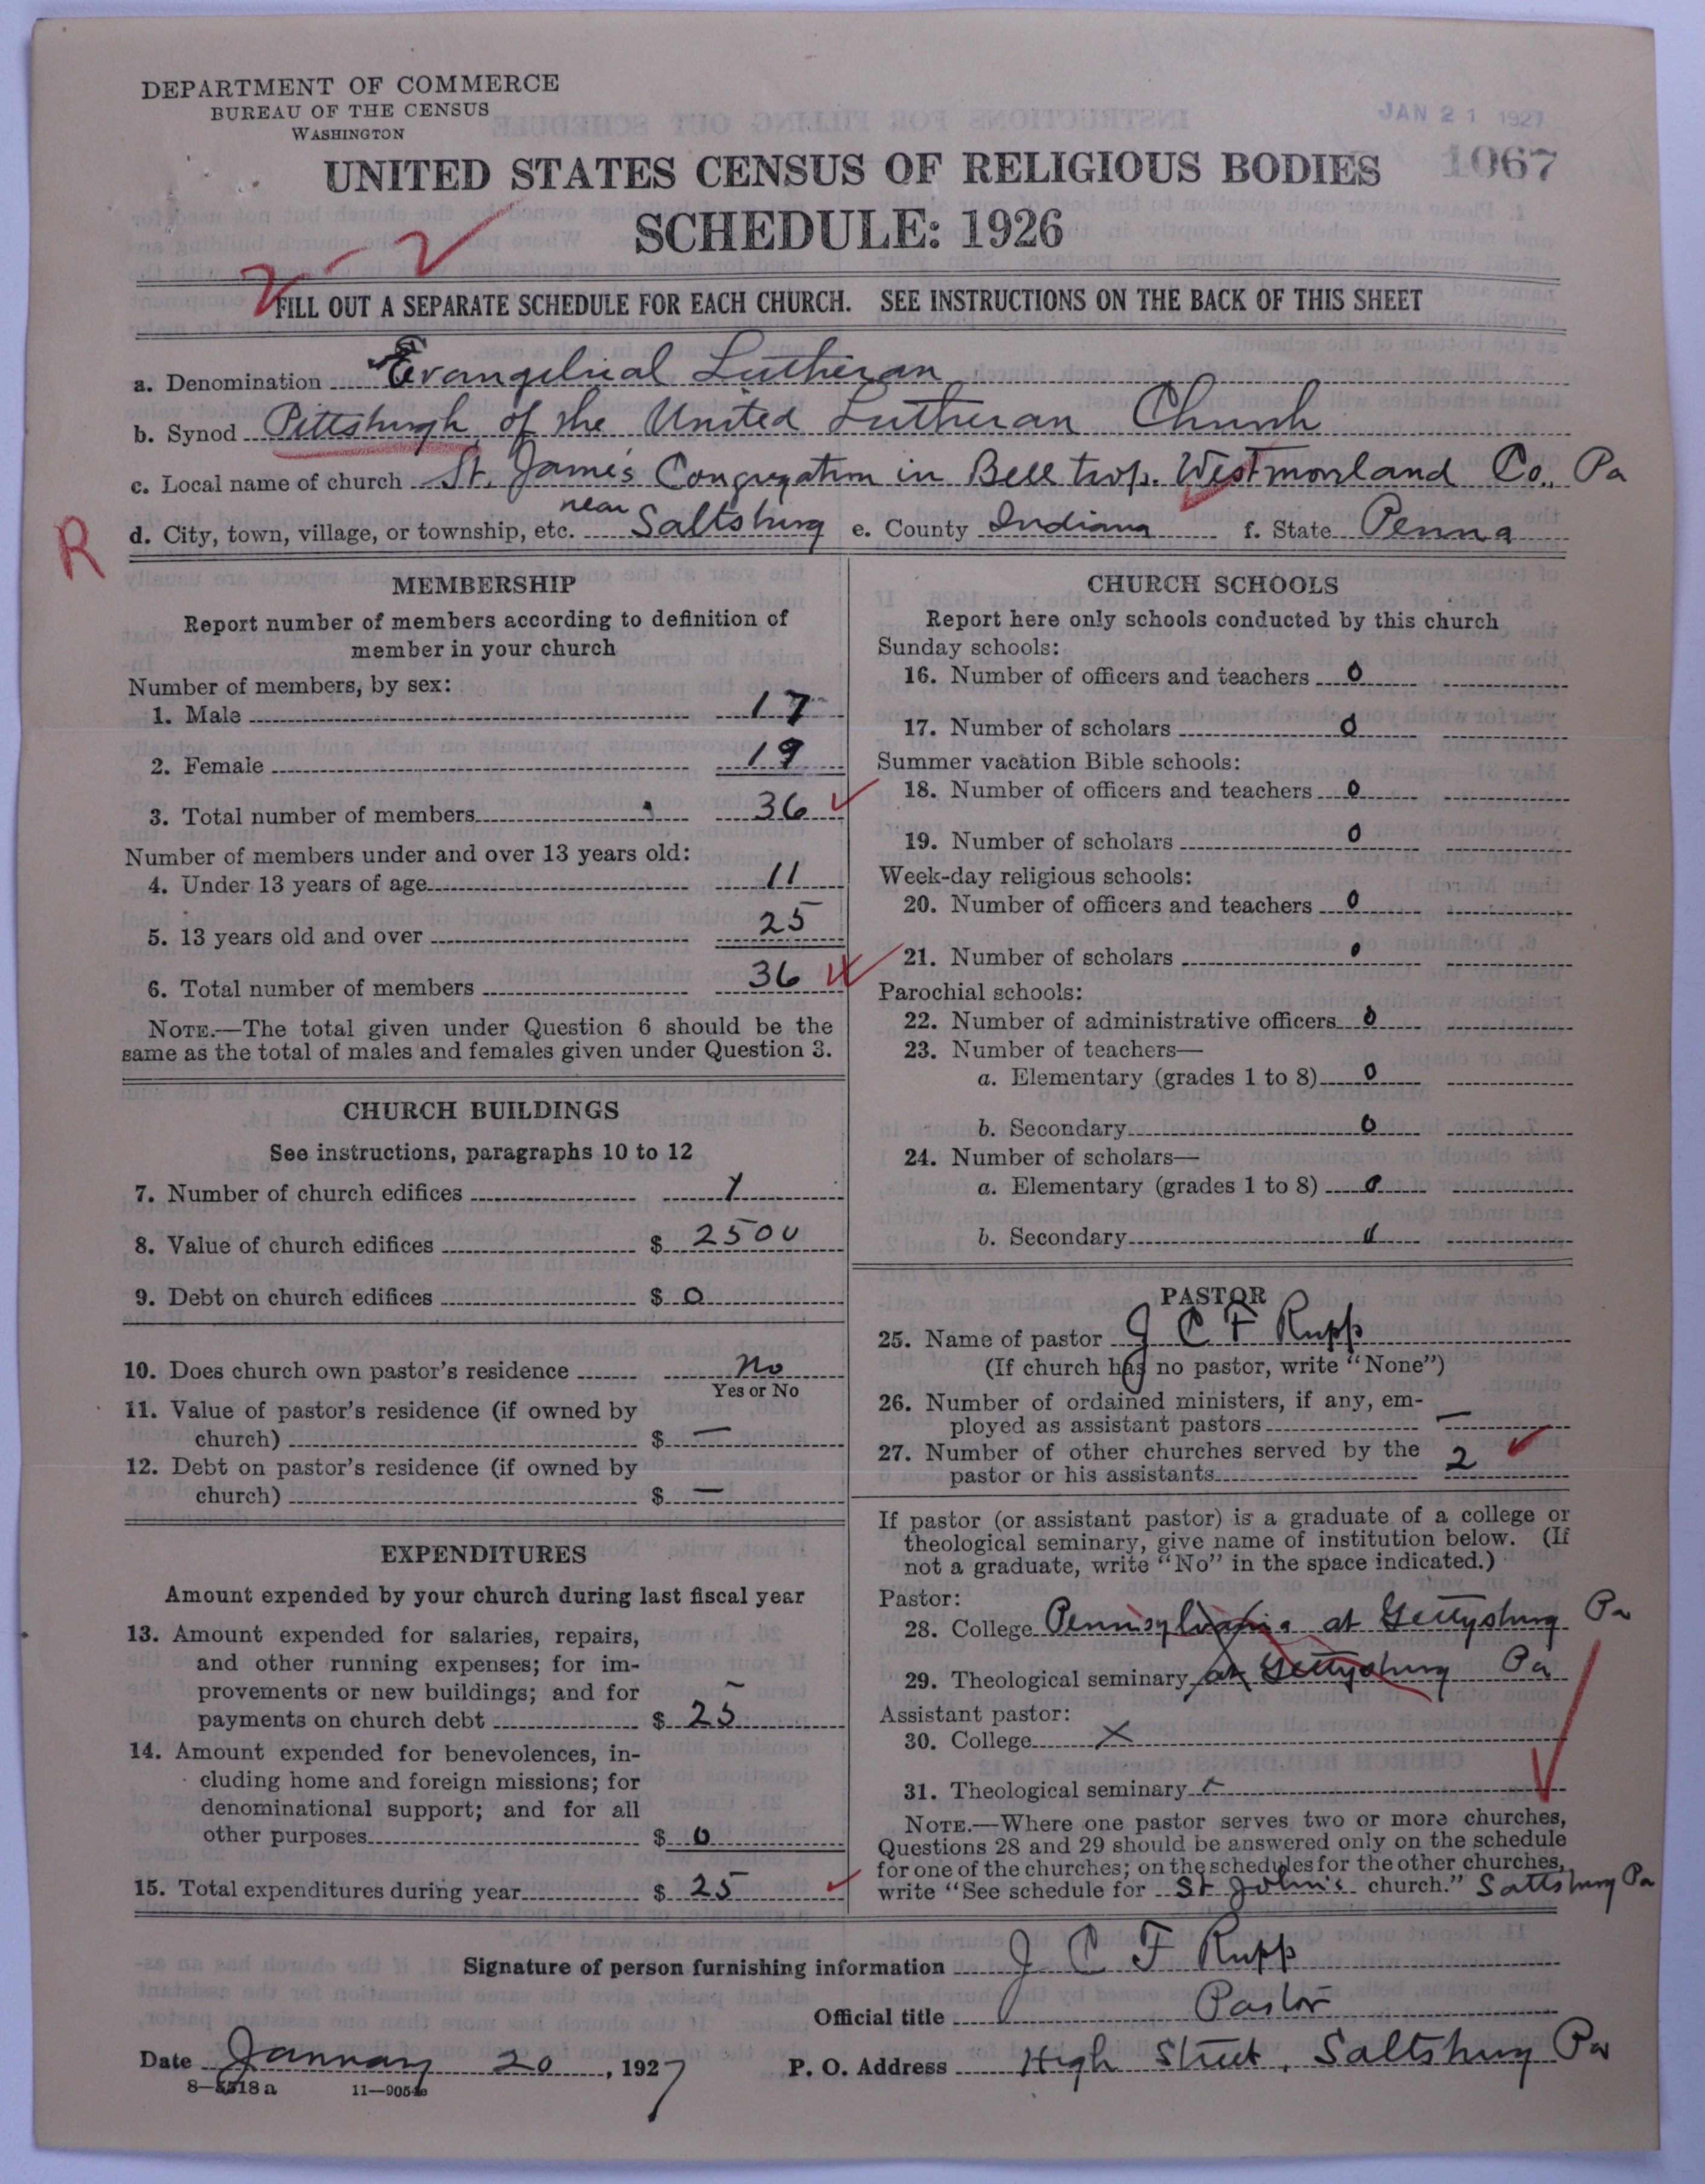 DEPARTMENT OF COMMERCE
BUREAU OF THE CENSUS
WASHINGTON
JAN 21 1927
1067
UNITED STATES CENSUS OF RELIGIOUS BODIES
SCHEDULE: 1926
FILL OUT A SEPARATE SCHEDULE FOR EACH CHURCH. SEE INSTRUCTIONS ON THE BACK OF THIS SHEET
a. Denomination Evangelical Lutheran
b. Synod Pittsburgh of the United Lutheran Church
c. Local name of church St. James Congregation in Bell twp. Westmorland Co., Pa
R
d. City, town, village, or township, etc. near Saltsburg e. County Indiana f. State Penna
MEMBERSHIP
Report number of members according to definition of
member in your church
Number of members, by sex:
1. Male 17
2. Female 19
3. Total number of members 36
Number of members under and over 13 years old:
4. Under 13 years of age 11
5. 13 years old and over 25
6. Total number of members 36
NOTE.—The total given under Question 6 should be the
same as the total of males and females given under Question 3.
CHURCH BUILDINGS
See instructions, paragraphs 10 to 12
7. Number of church edifices 1
8. Value of church edifices $ 2500
9. Debt on church edifices $ 0
10. Does church own pastor's residence No
Yes or No
11. Value of pastor's residence (if owned by
church) $ —
12. Debt on pastor's residence (if owned by
church) $ —
EXPENDITURES
Amount expended by your church during last fiscal year
13. Amount expended for salaries, repairs,
and other running expenses; for im-
provements or new buildings; and for
payments on church debt $ 25
14. Amount expended for benevolences, in-
cluding home and foreign missions; for
denominational support; and for all
other purposes $ 0
15. Total expenditures during year $ 25
CHURCH SCHOOLS
Report here only schools conducted by this church
Sunday schools:
16. Number of officers and teachers 0
17. Number of scholars 0
Summer vacation Bible schools:
18. Number of officers and teachers 0
19. Number of scholars 0
Week-day religious schools:
20. Number of officers and teachers 0
21. Number of scholars 0
Parochial schools:
22. Number of administrative officers 0
23. Number of teachers—
a. Elementary (grades 1 to 8) 0
b. Secondary 0
24. Number of scholars—
a. Elementary (grades 1 to 8) 0
b. Secondary 0
PASTOR
25. Name of pastor J C F Rupp
(If church has no pastor, write "None")
26. Number of ordained ministers, if any, em-
ployed as assistant pastors —
27. Number of other churches served by the
pastor or his assistants 2
If pastor (or assistant pastor) is a graduate of a college or
theological seminary, give name of institution below. (If
not a graduate, write "No" in the space indicated.)
Pastor:
28. College Pennsylvania at Gettysburg Pa
29. Theological seminary at Gettysburg Pa
Assistant pastor:
30. College X
31. Theological seminary
NOTE.—Where one pastor serves two or more churches,
Questions 28 and 29 should be answered only on the schedule
for one of the churches; on the schedules for the other churches,
write "See schedule for St John's church." Saltsburg Pa
Signature of person furnishing information J C F Rupp
Official title Pastor
Date January 20, 1927 P. O. Address High Street, Saltsburg Pa
8—5518a 11—9054e